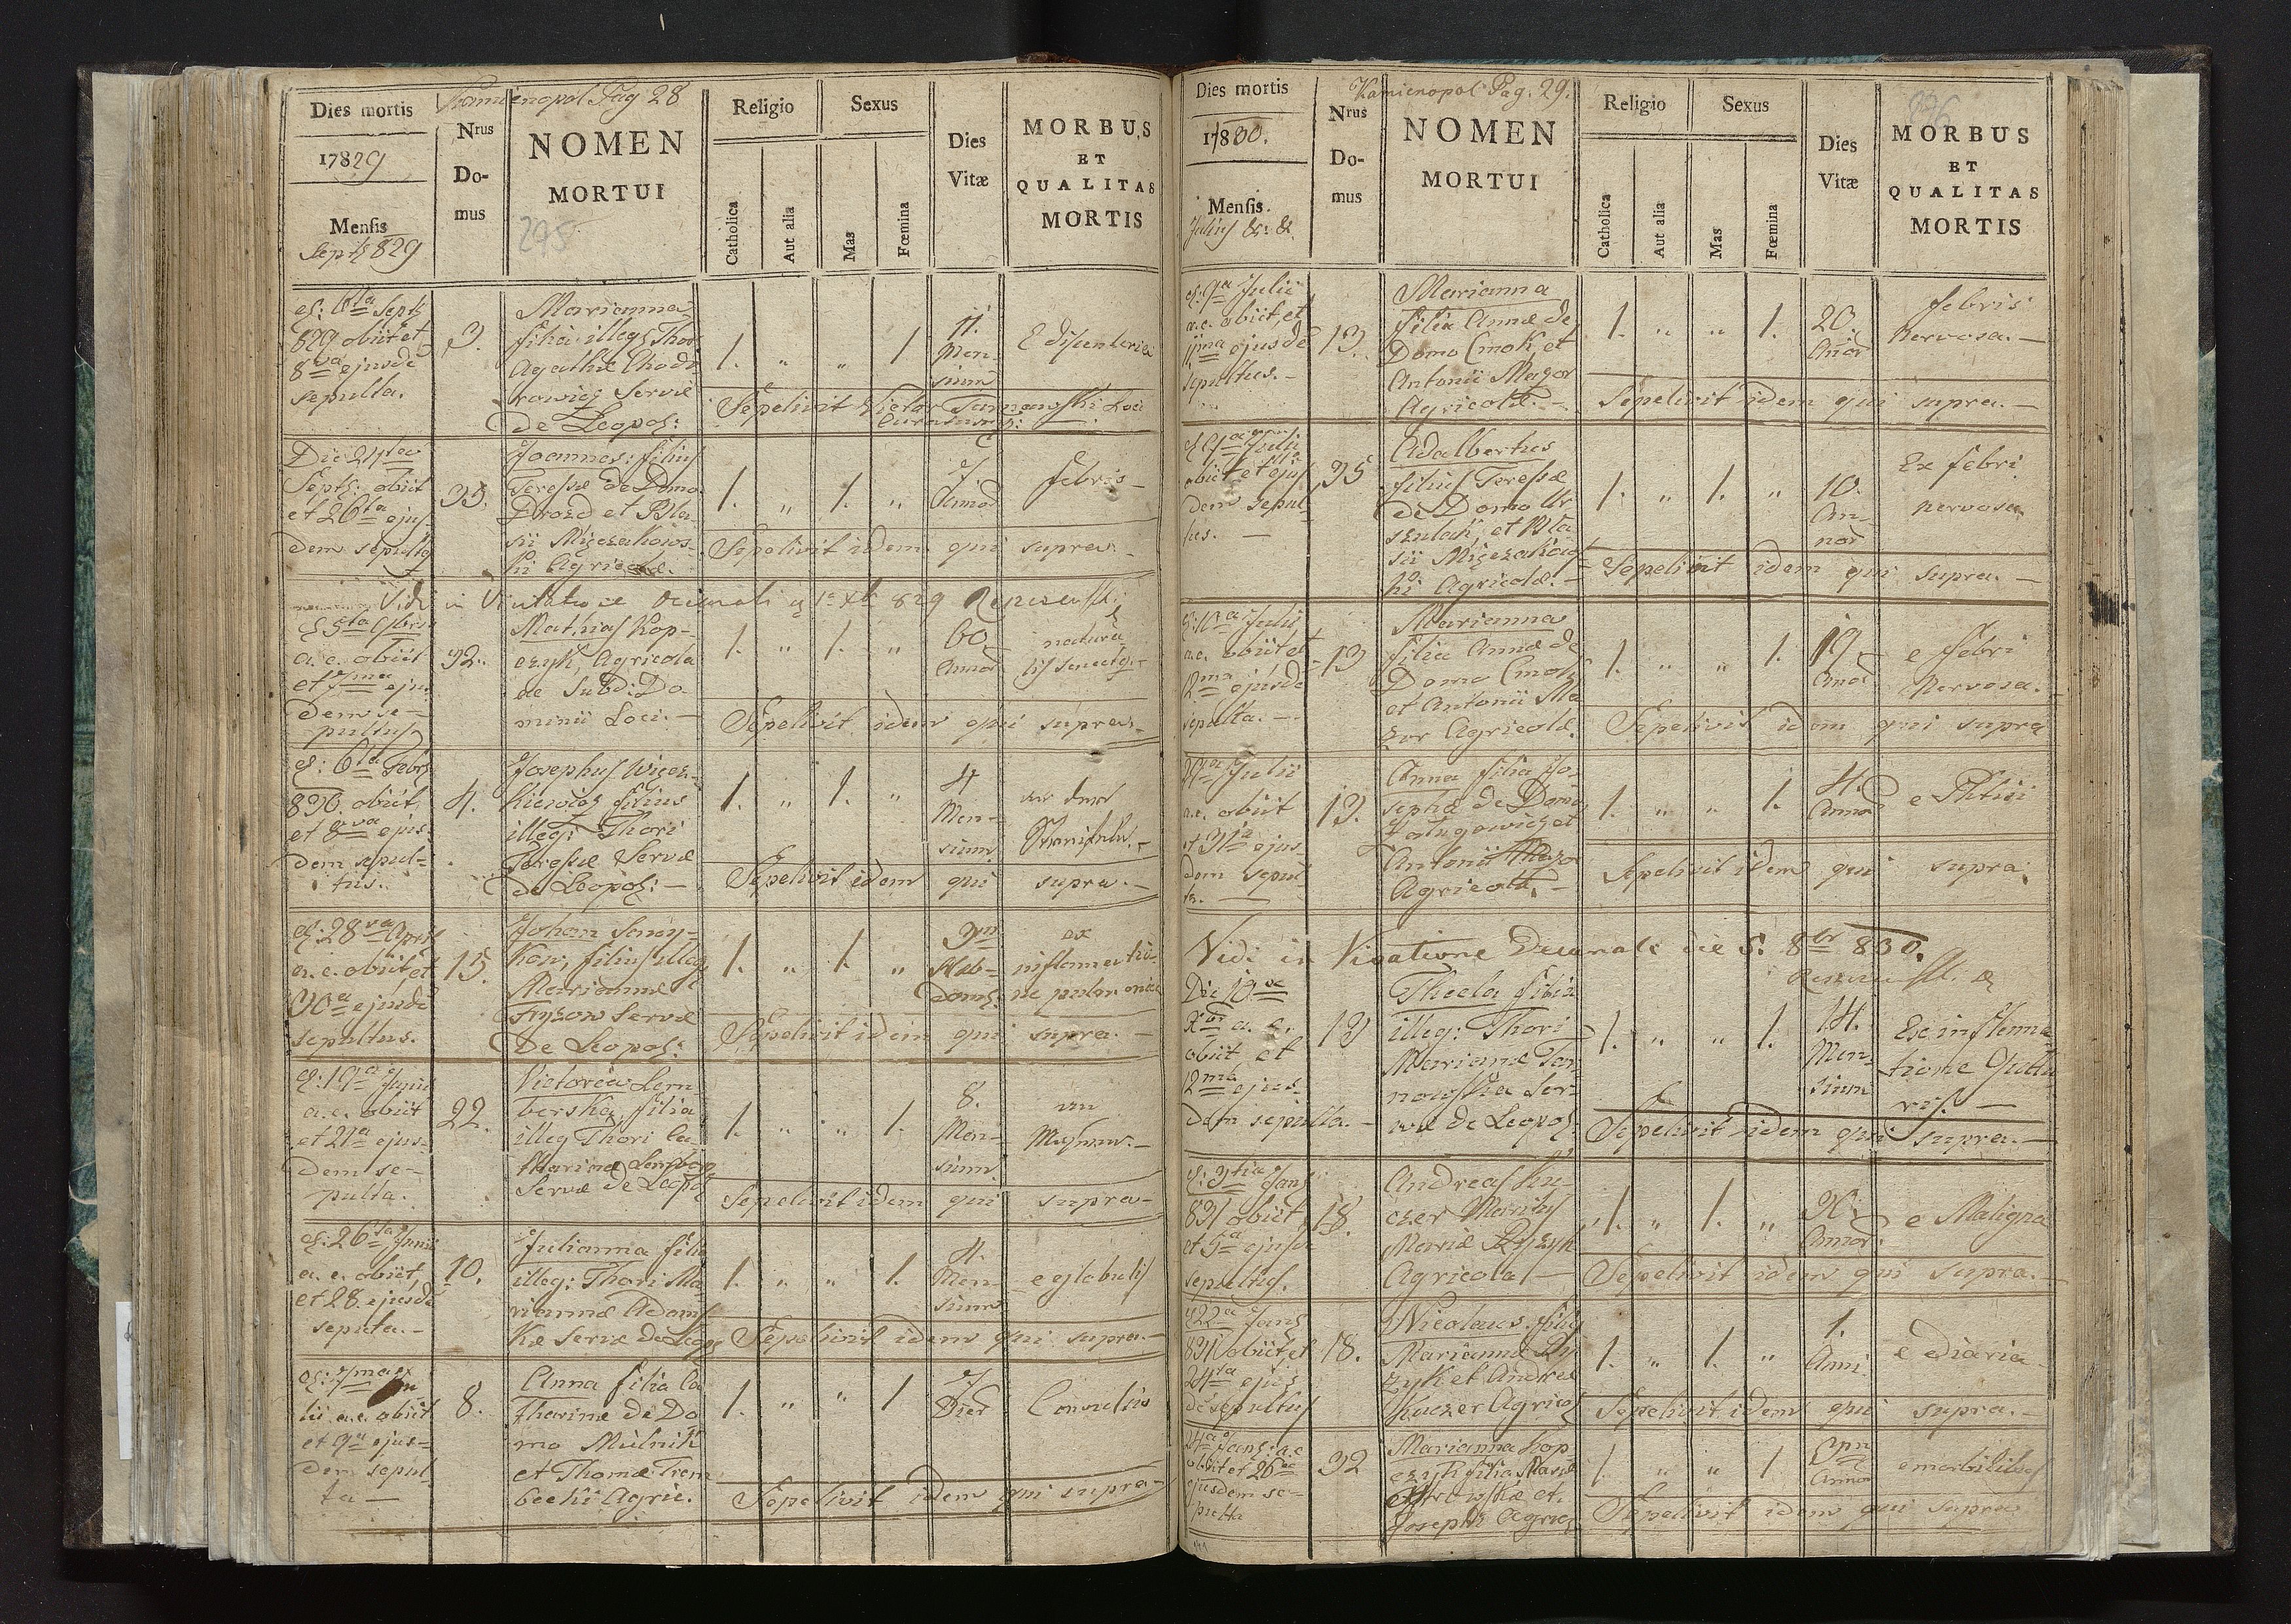 Kamienopol Pag 28
Dies mortis
17829
Mensis
Septb 829
Nrus
Do-
mus
NOMEN
MORTUI
295
Religio
Catholica
Aut alia
Sexus
Mas
Fœmina
Dies
Vitæ
MORBUS
ET
QUALITAS
MORTIS
829 obiit et
8va ejusde
sepulta.
3.
Marianna
filia illeg Thori
Agathæ
Servæ
de Leopol:
1. „ „ 1
11.
Men-
sium
Sepelivit Victor Tarnawski Loci
Die 24ta
Septb: obiit
et 26ta ejus-
dem sepultg
35.
Joannes: filius
Teresiæ de Domo
Drozd et Bla-
sii
Agricolæ.
1. „ 1. „
7
Annor
febris
Sepelivit idem qui supra.
Vidi in Visitatione Decanali
829
a. c. obiit
et 7ma ejus
dem se-
pultus
32.
Mathias Kop-
czyk, Agricola
de Subd: Do-
minii Loci.
1. „ 1. „
60
Annor
natura
Sepelivit idem qui supra.
6ta Febr
830. obiit,
et 8va ejus
dem sepul-
tus.
4.
Josephus
filius
illeg: Thori
Teresiæ Servæ
de Leopol:
1. „ 1. „
4
Men-
sium
Sepelivit idem qui supra.
28va April
a. c. obiit et
30a ejusde
sepultus.
15.
Johan
filius illeg
Marianna
Servæ
de Leopol:
1. „ 1. „
ex
inflamatio-
ne pulmonia
Sepelivit idem qui supra.
19a Junii
a. c. obiit
et 21a ejus-
dem se-
pulta.
22.
Victoria Lem-
berska, filia
illeg Thori Ca-
tharinæ
Servæ de Leopol
1. „ „ 1.
8.
Men-
sium
Sepelivit idem qui supra
26ta Junii
a. c. obiit,
et 28. ejusde
sepulta.
10.
Julianna filia
illeg: Thori Ma-
riannæ Adams
kæ Servæ de Leopol
1. „ „ 1.
4.
Men-
sium
Sepelivit idem qui supra.
7ma
lii a. c. obiit
et 9a ejus-
dem sepul
ta
8.
Anna filia Ca
tharinæ de Do-
mo Mulnik
et Thomæ Trem
becki Agric.
1. „ „ 1
7
Dier
Convulsio
Sepelivit idem qui supra
Kamienopol Pag. 29.
Dies mortis
17830.
Mensis.
Julius &: &.
Nrus
Do-
mus
NOMEN
MORTUI
Religio
Catholica
Aut alia
Sexus
Mas
Fœmina
Dies
Vitæ
MORBUS
ET
QUALITAS
MORTIS
9a Julii
a. c. obiit, et
11ma ejusde
sepultus.
13.
Marianna
filia Annæ de
Domo Cmok, et
Antonii Mazor
Agricolæ.
1. „ „ 1.
20.
Annor
febris
Nervosa.
Sepelivit idem qui supra.
Julii
obiit et ejus
dem sepul-
tus.
35
Adalbertus
filius Teresiæ
de Domo Ur
szulak, et Bla
sii
Agricolæ.
1. „ 1. „
10.
An-
nor
Ex febri
nervosa
Sepelivit idem qui supra.
10a Julii
a. c. obiit et
12ma ejusde
sepulta.
13
Marianna
filia Annæ de
Domo Cmok
et Antonii Ma
zor Agricolæ.
1. „ „ 1.
19
Annor
e febri
Nervosa.
Sepelivit idem qui supra
Julii
a. c. obiit
et 31a ejus
dem sepul-
ta.
13.
Anna filia Jo-
sephæ de Domo
et
Antonii Mazo
Agricolæ.
1. „ „ 1.
4.
Annor
e Phtisi
Sepelivit idem qui supra.
Vidi in Visitatione Decanali die 5. 8br 830.
Die 10a
Xbr a. c.
obiit et
12ma ejus-
dem sepulta.
13
Thecla filia
illeg: Thori
Mariannæ Tar
nowska Ser-
væ de Leopol:
1. „ „ 1.
14.
Men-
sium
Ex inflama
tione Guttu
ris.
Sepelivit idem qui supra.
3tia Jan
831 obiit
et 5a ejusde
sepultus.
18.
Andreas Ku-
czer Maritus
Mariæ Ryzyk
Agricola
1. „ 1. „
30.
Annor.
e Maligna
Sepelivit idem qui supra.
22a Jan
831 obiit et
24ta ejus
de sepultus
18.
Nicolaus. filius
Mariannæ Ry
zyk et Andreæ
Kuczer Agricol
1. „ 1. „
1.
Anni.
e diaria
Sepelivit idem qui supra.
24a Jan: a. c
obiit et 26a
ejusdem se-
pulta
32
Marianna Kop
czyk filia Mariæ
et
Josephi Agric
1. „ „ 1
Annor
e morbilibus
Sepelivit idem qui supra